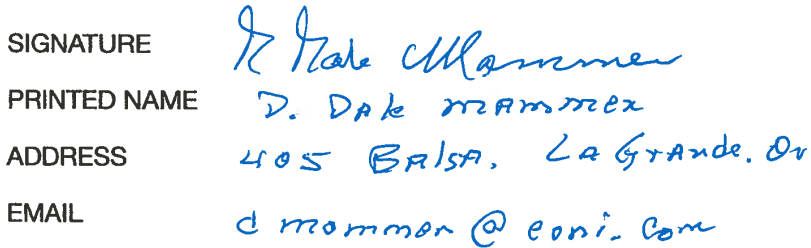 SIGNATURE D Dale Mammen
PRINTED NAME D. DAle mammen
ADDRESS 405 BAlsA. LA GrAnde. Or
EMAIL d mammen @ eoni. Com